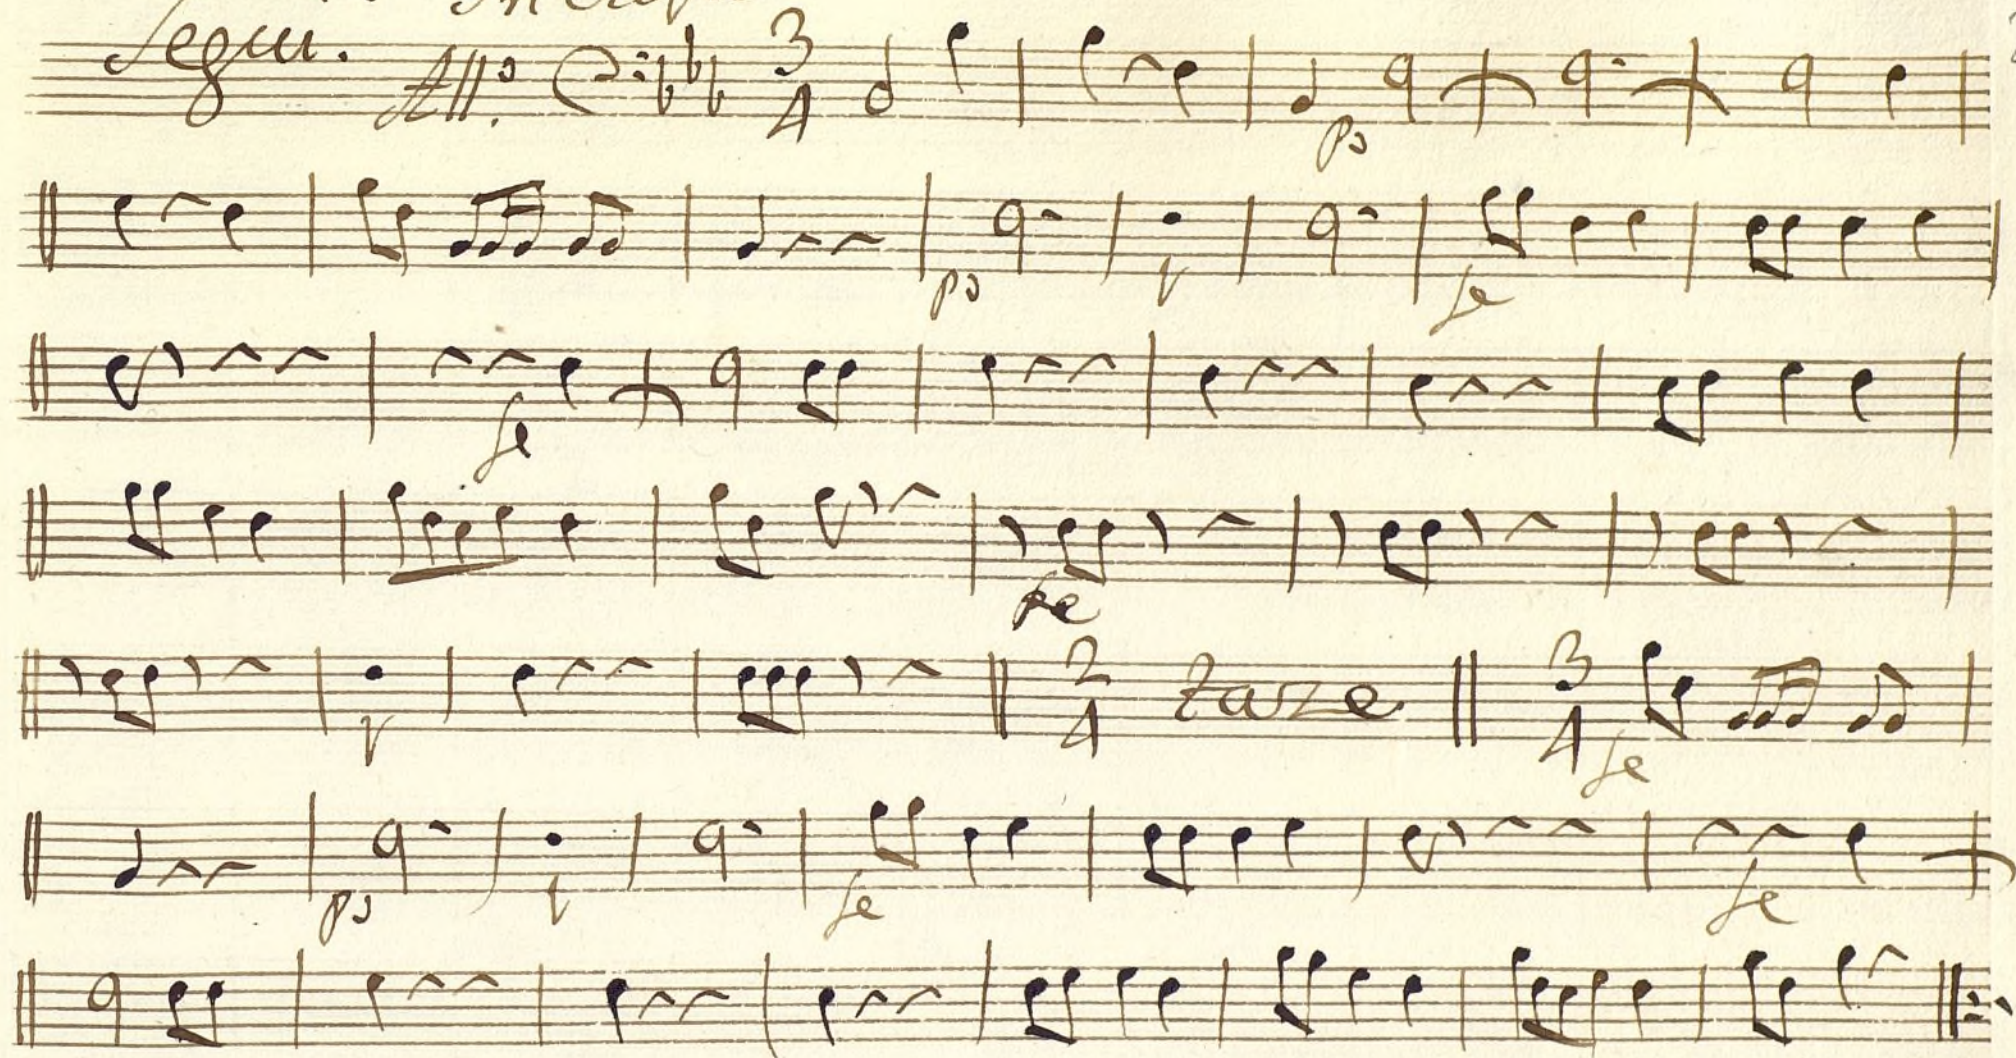 Segui.
All:o 3 4
po
po fe
fe
fe
2 4 Tasze 3 4 fe
po fe fe